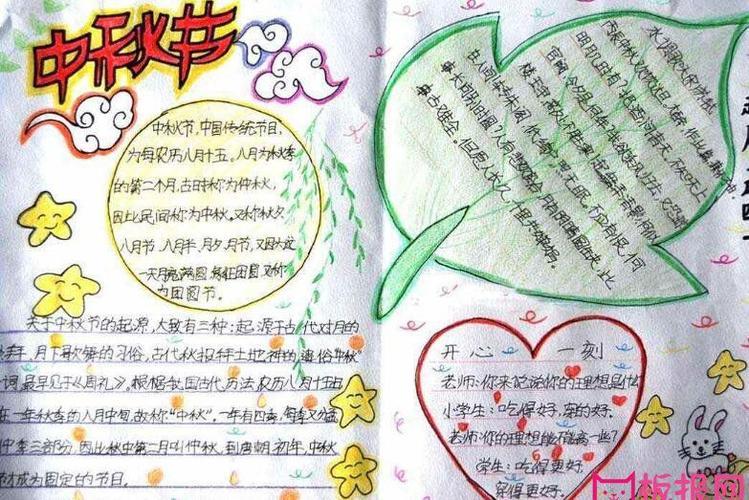 中秋节
中秋节,中国传统节日,
为每农历八月十五。八月为秋季
的第二个月,古时称为仲秋,
因此民间称为中秋。又称秋夕
八月节,八月半,月夕,月节,又因为这
一天月亮满圆,象征团圆,又称
为团圆节。
关于中秋节的起源,大致有三种:起源于古代对月的
月下歌舞的习俗,古代秋报拜土地神的遗俗。中秋"
一词,最早见于《周礼》。根据我国古代历法,农历八月十五
在一年秋季的八月中旬,故称"中秋"。一年有四季,每季又分
仲季三部分,因此秋中第二月叫仲秋,到唐朝初年,中秋
才成为固定的节日。
水调歌头
丙辰中秋,欢饮达旦,大醉,作此篇,兼怀子由
明月几时有?把酒问青天。不知天上
宫阙,今夕是何年。我欲乘风归去,又恐琼
楼玉宇,高处不胜寒。起舞弄清影,何似
在人间。转朱阁,低绮户,照无眠。不应有恨,何
事长向别时圆?人有悲欢离合,月有阴晴圆缺,此
事古难全。但愿人长久,千里共婵娟。
开心一刻
老师:你来说说你的理想是什么
小学生:吃得好,穿的好.
老师:你的理想能不能高一些?
学生:吃得更好.
穿得更好.
板报网